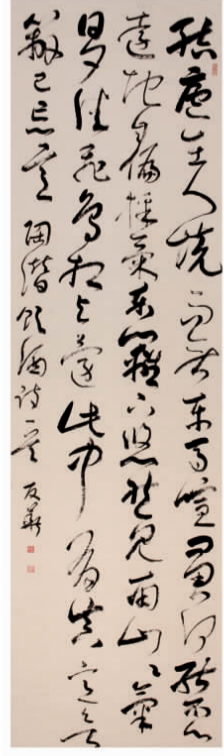 結廬在人境而無車馬喧問君何能爾心
遠地自偏採菊東籬下悠然見南山々氣
日夕佳飛鳥相與還此中有真意欲
辨已忘言 陶潛飲酒詩一首